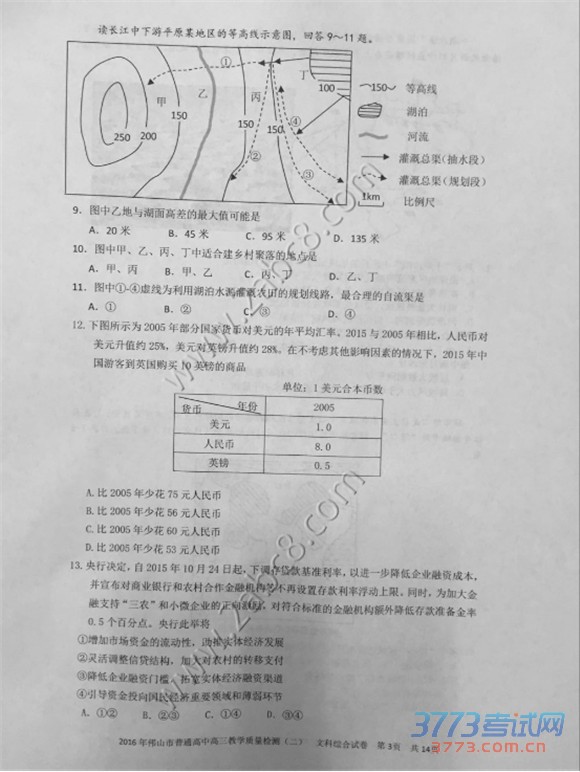 读长江中下游平原某地区的等高线示意图，回答9～11题。
甲
乙
丙
丁
250
200
150
150
150
100
①
②
③
④
~150~ 等高线
湖泊
河流
灌溉总渠(抽水段)
灌溉总渠(规划段)
1km 比例尺
9．图中乙地与湖面高差的最大值可能是
A．20米 B．45米 C．95米 D．135米
10．图中甲、乙、丙、丁中适合建乡村聚落的地点是
A．甲、丙 B．甲、乙 C．丙、丁 D．乙、丁
11．图中①-④虚线为利用湖泊水源灌溉农田的规划线路，最合理的自流渠是
A．① B．② C．③ D．④
12.下图所示为2005年部分国家货币对美元的年平均汇率。2015与2005年相比，人民币对
美元升值约25%，美元对英镑升值约28%。在不考虑其他影响因素的情况下，2015年中
国游客到英国购买10英镑的商品
单位：1美元合本币数
货币 年份 2005
美元 1.0
人民币 8.0
英镑 0.5
A.比2005年少花75元人民币
B.比2005年少花56元人民币
C.比2005年少花60元人民币
D.比2005年少花53元人民币
13.央行决定，自2015年10月24日起，下调存贷款基准利率，以进一步降低企业融资成本，
并宣布对商业银行和农村合作金融机构等不再设置存款利率浮动上限。同时，为加大金
融支持“三农”和小微企业的正向激励，对符合标准的金融机构额外降低存款准备金率
0.5个百分点。央行此举将
①增加市场资金的流动性，助推实体经济发展
②灵活调整信贷结构，加大对农村的转移支付
③降低企业融资门槛，拓宽实体经济融资渠道
④引导资金投向国民经济重要领域和薄弱环节
A．①③ B．②③ C．①④ D．②④
2016年邳山市普通高中高三教学质量检测（二） 文科综合试卷 第3页 共14页
www.zabc8.com
www.zabc8.com
3773考试网
www.3773.com.cn